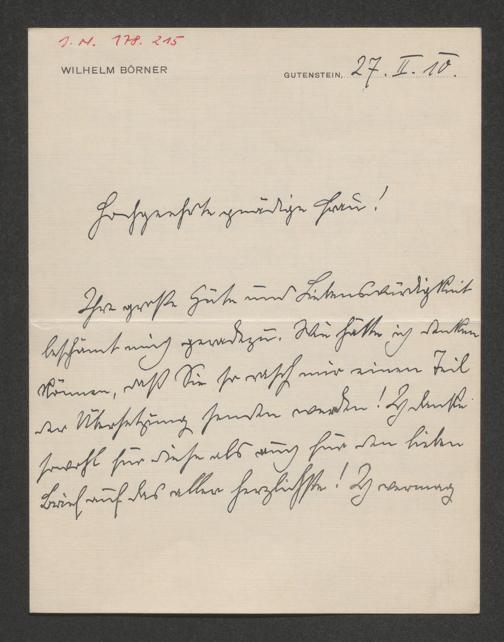 J. N. 178.215
WILHELM BÖRNER
GUTENSTEIN, 27. II. 10.
Hochgeehrte gnädige Frau!
Ihre große Güte und Liebenswürdigkeit
beschämt mich geradezu. Wie hätte ich denken
können, daß Sie so rasch mir einen Teil
der Übersetzung senden werden! Ich danke
sowohl für diese als auch für den lieben
Brief auf das aller herzlichste! Ich vermag